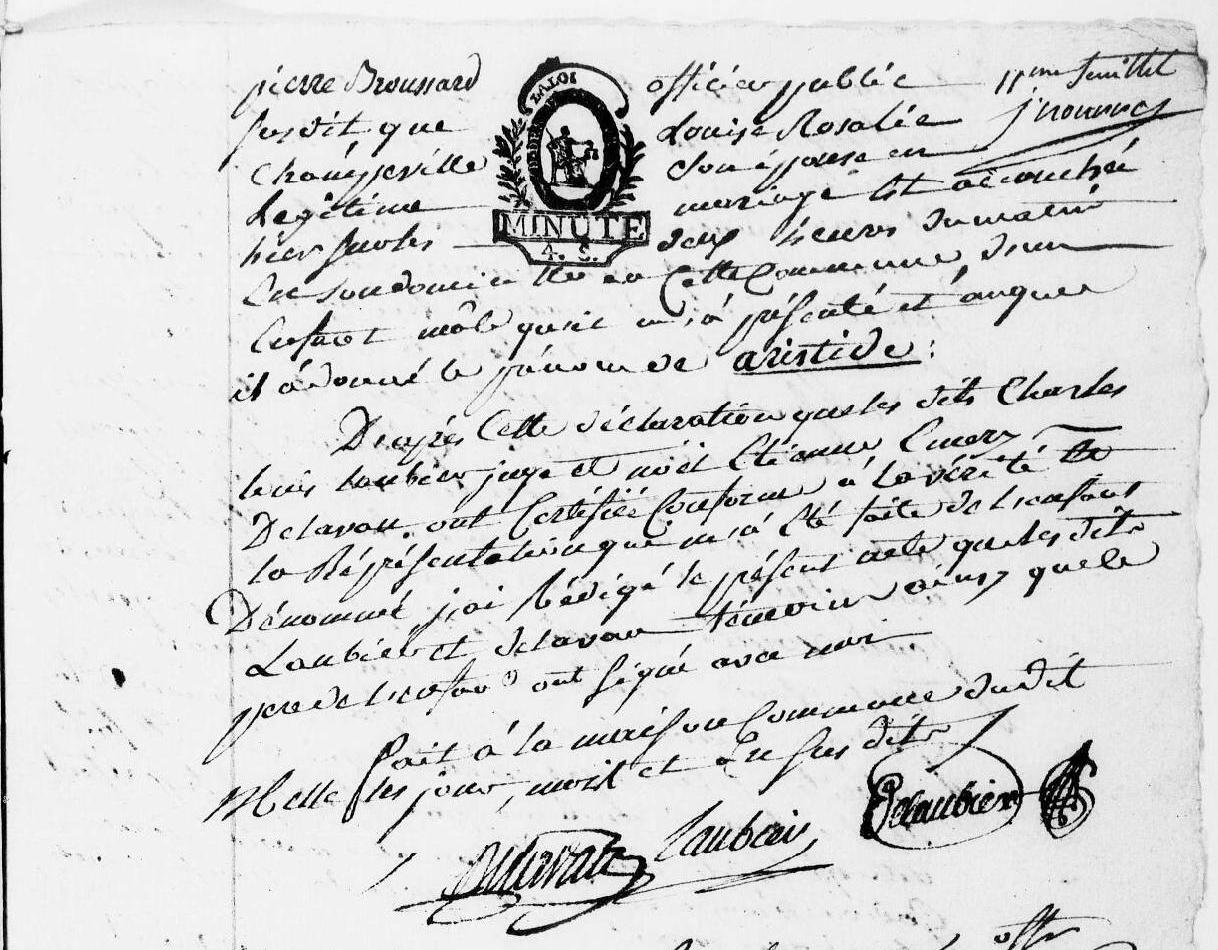 pierre Broussard officier public 11eme feuillet
susdit, que Louise Rosalie
Champeville son épouse en
Legitime mariage Est accouchée
LA LOI
MINUTE
A. S.
hier deux heures du matin
En son domicille en Cette Commune, d'un
Enfant mâle qu'il m'a présenté et auquel
il a donné le prénom de aristide :
D'après Cette déclaration que les dits Charles
Louis Laubier juge et noël Etienne Emery
Delavau ont Certifiée Conforme à la vérité Et
la Réprésentation qui m'a Eté faite de L'enfant
Dénommé, j'ai Rédigé le présent acte que les dits
Laubier et delavau témoins ainsy que le
pere de L'enfant ont signé avec moi.
fait à la maison Commune dudit
Melle les jour, mois et En sus dits
Delavau Laubier Delaubier
off